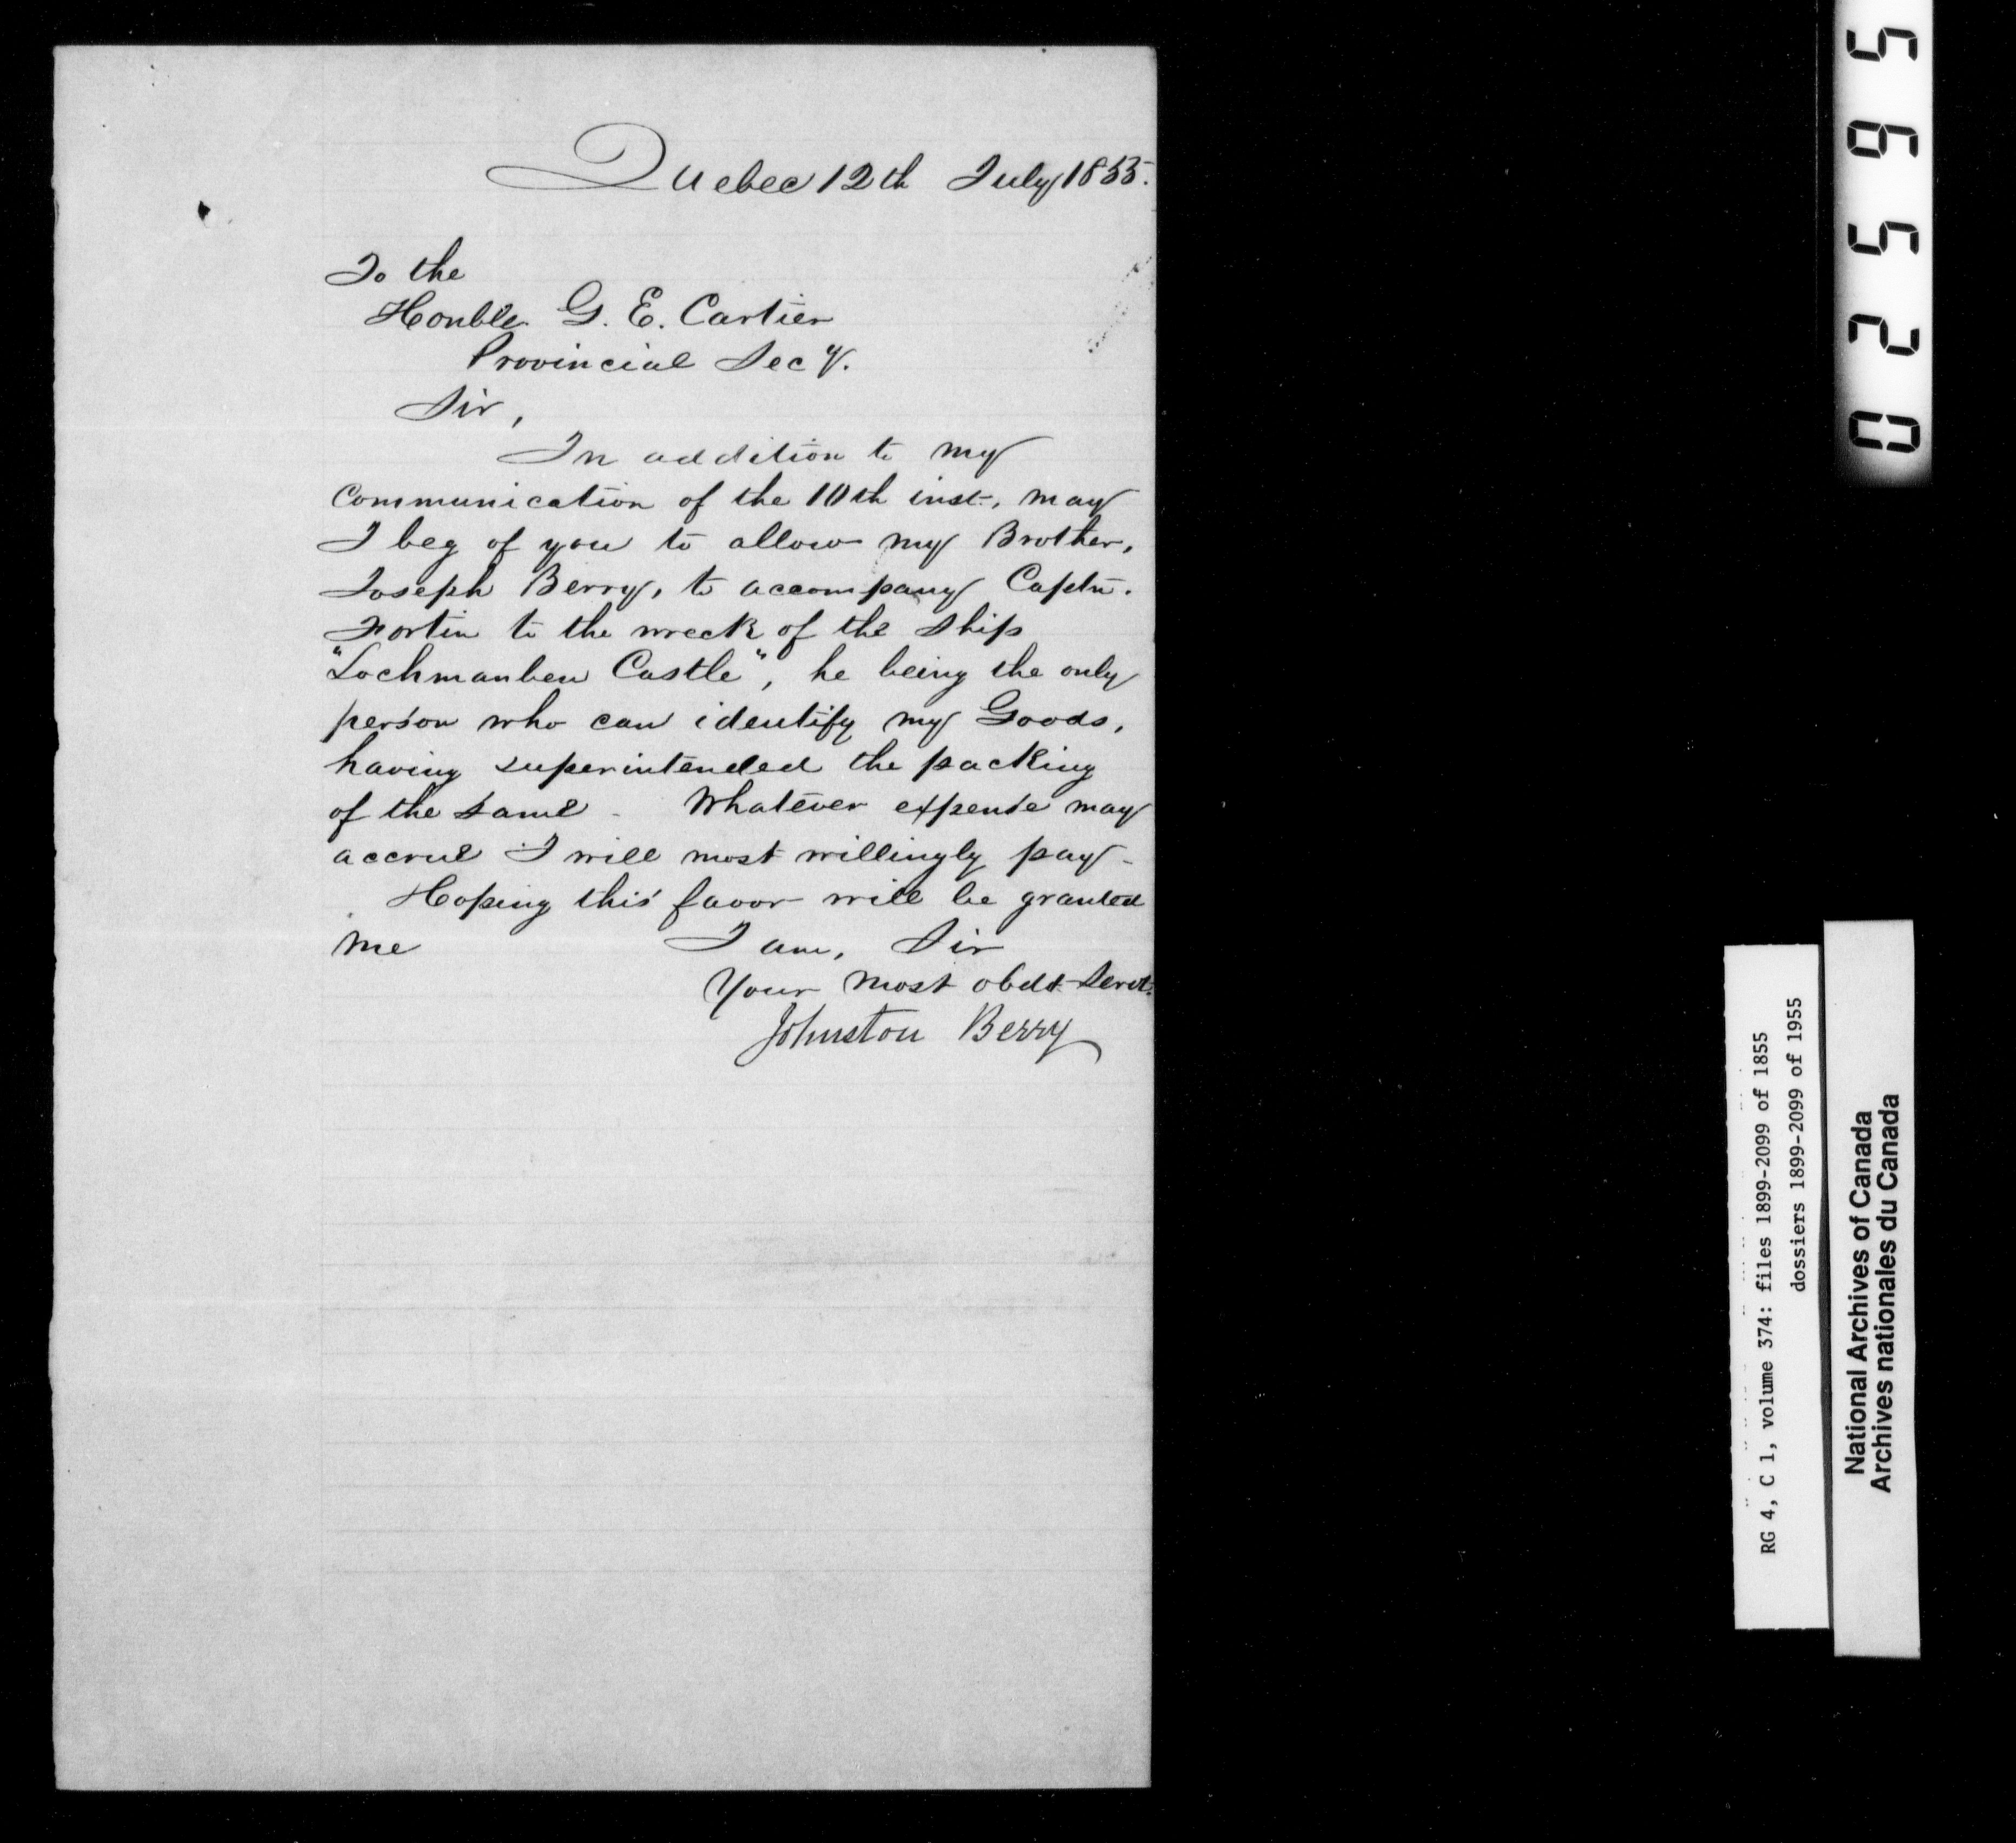 Quebec 12th July 1855.
To the
Honble. G. E. Cartier
Provincial Secy.
Sir,
In addition to my
Communication of the 10th inst., may
I beg of you to allow my Brother,
Joseph Berry, to accompany Captn.
Fortin to the wreck of the Ship
"Lochmanben Castle", he being the only
person who can identify my Goods,
having superintended the packing
of the same - Whatever expense may
accrue I will most willingly pay -
Hoping this favor will be granted
me I am, Sir
Your most obdt. Servt.
Johnston Berry
02565
RG 4, C 1, volume 374: files 1899-2099 of 1855
dossiers 1899-2099 of 1955
National Archives of Canada
Archives nationales du Canada